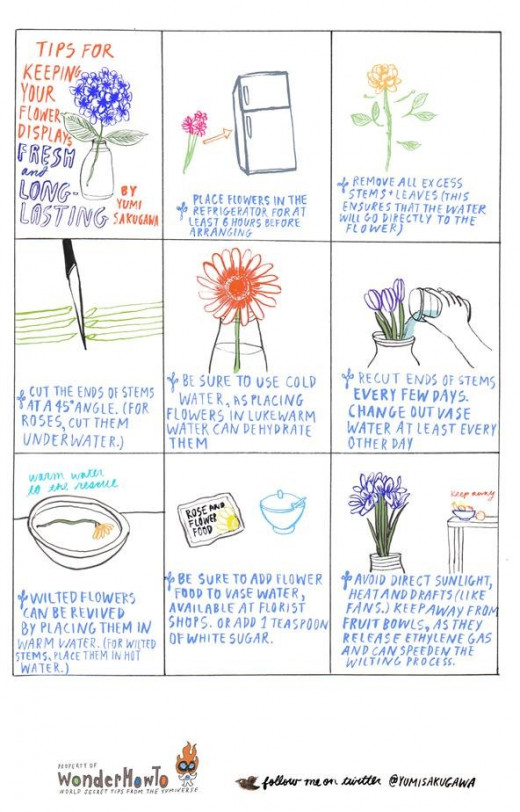 TIPS FOR
KEEPING
YOUR
FLOWER
DISPLAYS
FRESH
and
LONG-
LASTING
BY
YUMI
SAKUGAWA
PLACE FLOWERS IN THE
REFRIGERATOR FOR AT
LEAST 6 HOURS BEFORE
ARRANGING
REMOVE ALL EXCESS
STEMS + LEAVES (THIS
ENSURES THAT THE WATER
WILL GO DIRECTLY TO THE
FLOWER)
CUT THE ENDS OF STEMS
AT A 45° ANGLE. (FOR
ROSES, CUT THEM
UNDERWATER.)
BE SURE TO USE COLD
WATER, AS PLACING
FLOWERS IN LUKEWARM
WATER CAN DEHYDRATE
THEM
RECUT ENDS OF STEMS
EVERY FEW DAYS.
CHANGE OUT VASE
WATER AT LEAST EVERY
OTHER DAY
warm water
to the rescue
WILTED FLOWERS
CAN BE REVIVED
BY PLACING THEM IN
WARM WATER. (FOR WILTED
STEMS, PLACE THEM IN HOT
WATER.)
ROSE AND
FLOWER
FOOD
BE SURE TO ADD FLOWER
FOOD TO VASE WATER,
AVAILABLE AT FLORIST
SHOPS. OR ADD 1 TEASPOON
OF WHITE SUGAR.
keep away
AVOID DIRECT SUNLIGHT,
HEAT AND DRAFTS (LIKE
FANS.) KEEP AWAY FROM
FRUIT BOWLS, AS THEY
RELEASE ETHYLENE GAS
AND CAN SPEEDEN THE
WILTING PROCESS.
PROPERTY OF
WonderHowTo
WORLD SECRET TIPS FROM THE YUMIVERSE
follow me on twitter @YUMISAKUGAWA